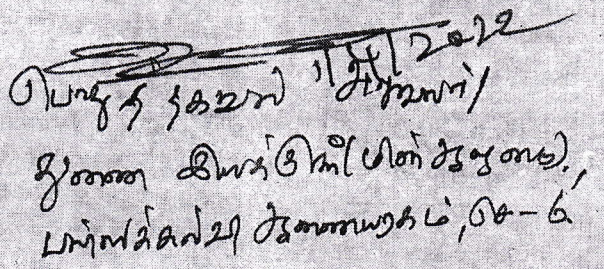 11/4/2022
பொதுத் தகவல் அலுவலர்/
துணை இயக்குநர் (மின் ஆளுமை).,
பள்ளிக்கல்வி ஆணையரகம், செ-6